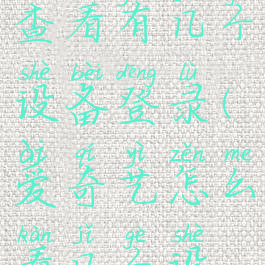 查看有几个
shè bèi dēng lù
设备登录(
ài qí yì zěn me
爱奇艺怎么
kàn jǐ gè shè